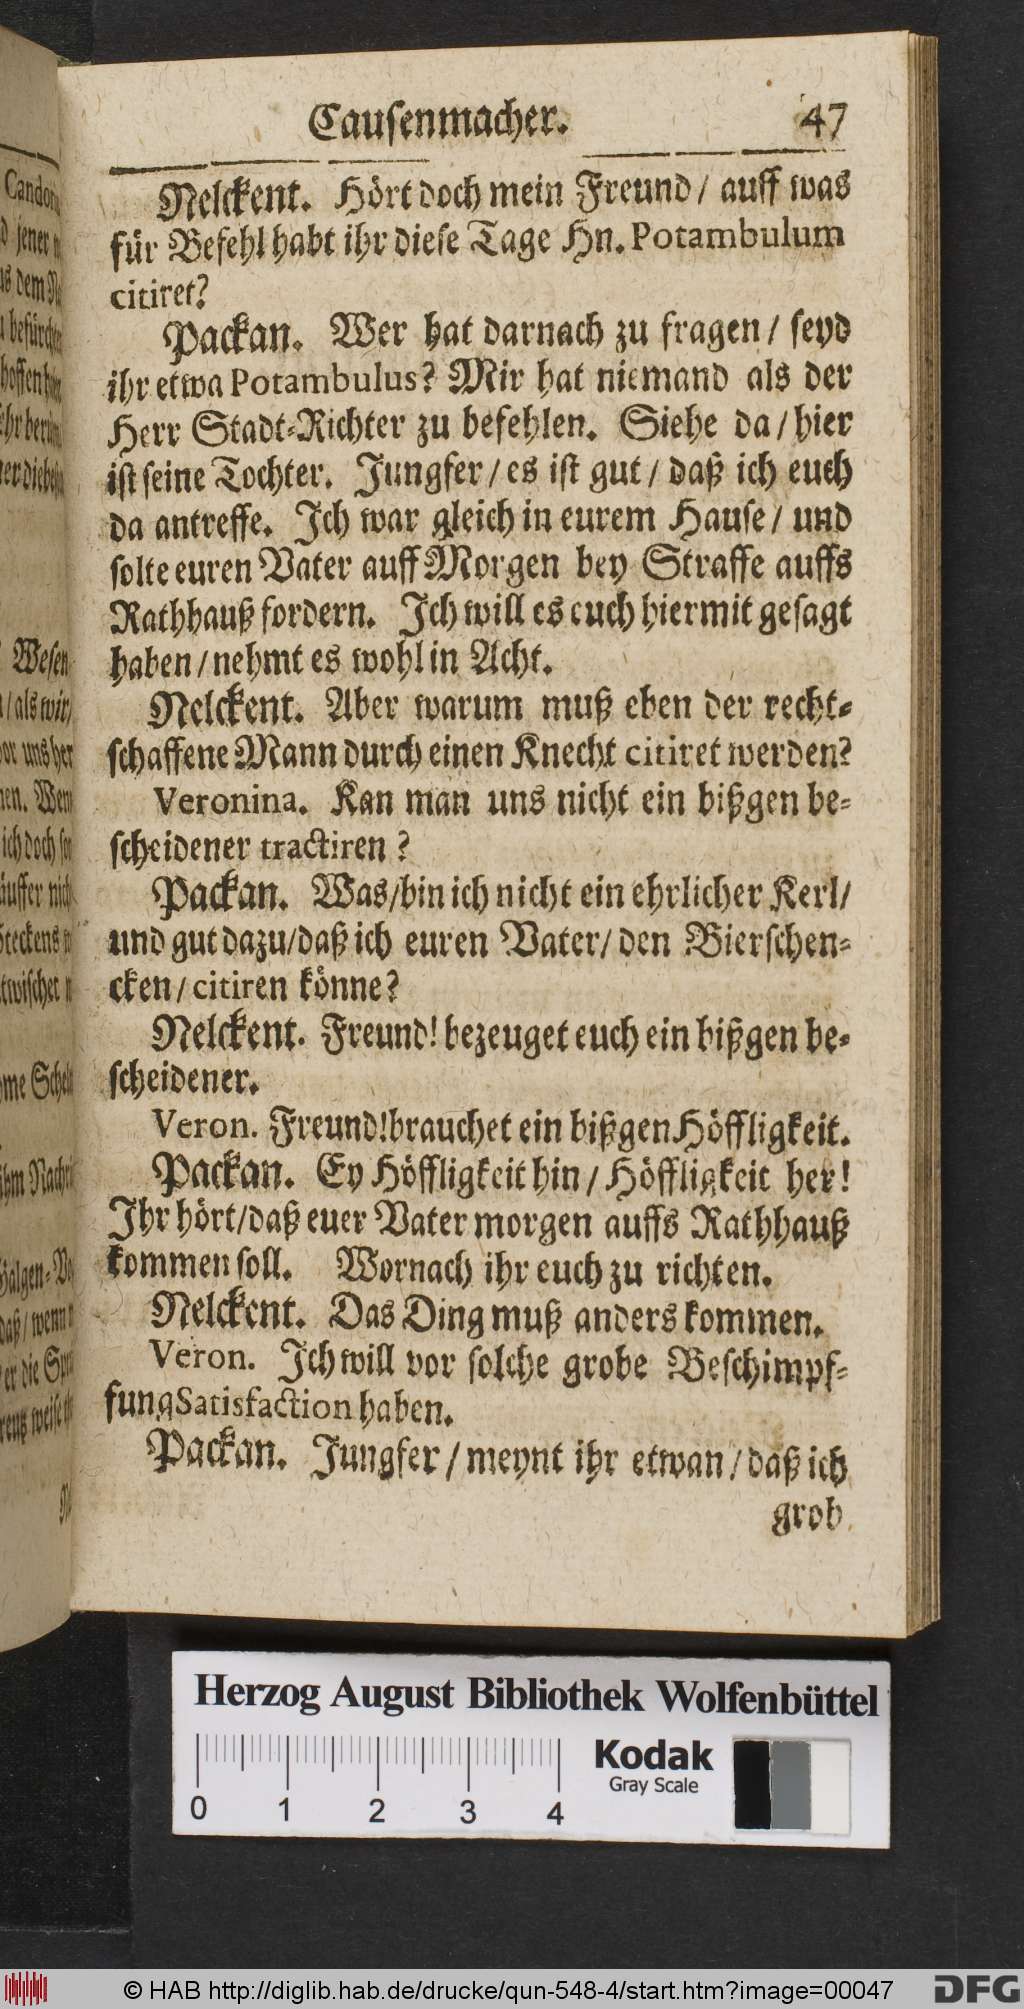 Causenmacher. 47
Nelckent. Hört doch mein Freund / auff was
für Befehl habt ihr diese Tage Hn. Potambulum
citiret?
Packan. Wer hat darnach zu fragen / seyd
ihr etwa Potambulus? Mir hat niemand als der
Herr Stadt-Richter zu befehlen. Siehe da / hier
ist seine Tochter. Jungfer / es ist gut / daß ich euch
da antreffe. Ich war gleich in eurem Hause / und
solte euren Vater auff Morgen bey Straffe auffs
Rathhauß fordern. Ich will es euch hiermit gesagt
haben / nehmt es wohl in Acht.
Nelckent. Aber warum muß eben der recht-
schaffene Mann durch einen Knecht citiret werden?
Veronina. Kan man uns nicht ein bißgen be-
scheidener tractiren?
Packan. Was / bin ich nicht ein ehrlicher Kerl /
und gut dazu / daß ich euren Vater / den Bierschen-
cken / citiren könne?
Nelckent. Freund! bezeuget euch ein bißgen be-
scheidener.
Veron. Freund! brauchet ein bißgen Höffligkeit.
Packan. Ey Höffligkeit hin / Höffligkeit her!
Ihr hört / daß euer Vater morgen auffs Rathhauß
kommen soll. Wornach ihr euch zu richten.
Nelckent. Das Ding muß anders kommen.
Veron. Ich will vor solche grobe Beschimpf-
fung Satisfaction haben.
Packan. Jungfer / meynt ihr etwan / daß ich
grob
Herzog August Bibliothek Wolfenbüttel
Kodak
Gray Scale
0 1 2 3 4
© HAB http://diglib.hab.de/drucke/qun-548-4/start.htm?image=00047
DFG